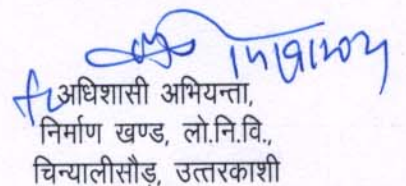 अधिशासी अभियन्ता,
निर्माण खण्ड, लो.नि.वि.,
चिन्यालीसौड़, उत्तरकाशी